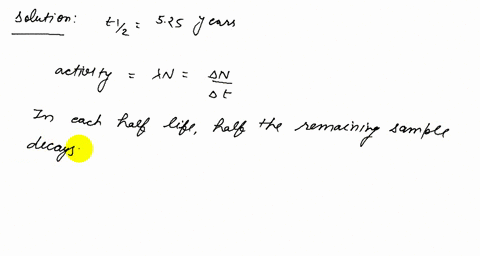 Solution: t1/2 = 5.25 years
activity = λN = ΔN/Δt
In each half life, half the remaining sample
decays.